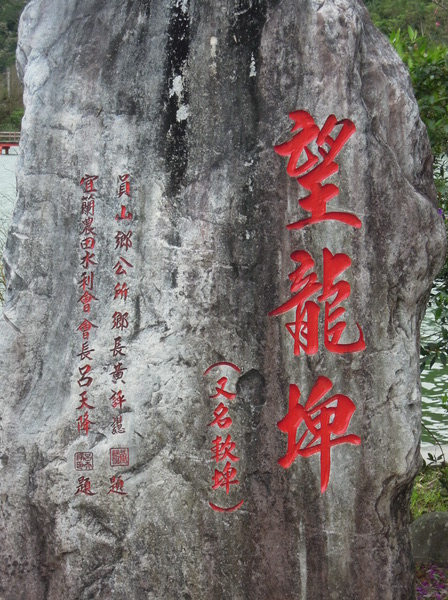 望龍埤
(又名軟埤)
員山鄉公所鄉長黃 題
宜蘭農田水利會會長呂天降 題